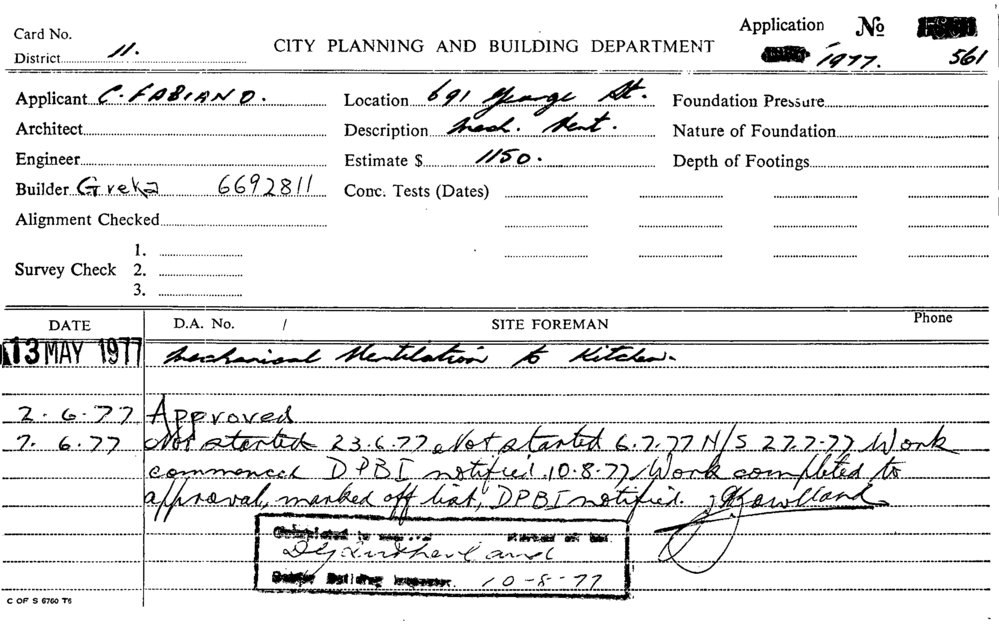 Card No.
District 11.
CITY PLANNING AND BUILDING DEPARTMENT
Application No
1977. 561
Applicant C. FABIANO.
Location 691 George St.
Foundation Pressure
Architect
Description Mech. Vent.
Nature of Foundation
Engineer
Estimate $ 1150.
Depth of Footings
Builder Greka 6692811
Conc. Tests (Dates)
Alignment Checked
Survey Check
1.
2.
3.
DATE D.A. No. / SITE FOREMAN Phone
13 MAY 1977 Mechanical Ventilation to Kitchen.
2.6.77 Approved
7.6.77 Not started 23.6.77 Not started 6.7.77 N/S 27.7.77 Work
commenced DPBI notified. 10.8.77 Work completed to
approval, marked off list, DPBI notified.
Building Inspector. 10-8-77
C OF S 6760 T6